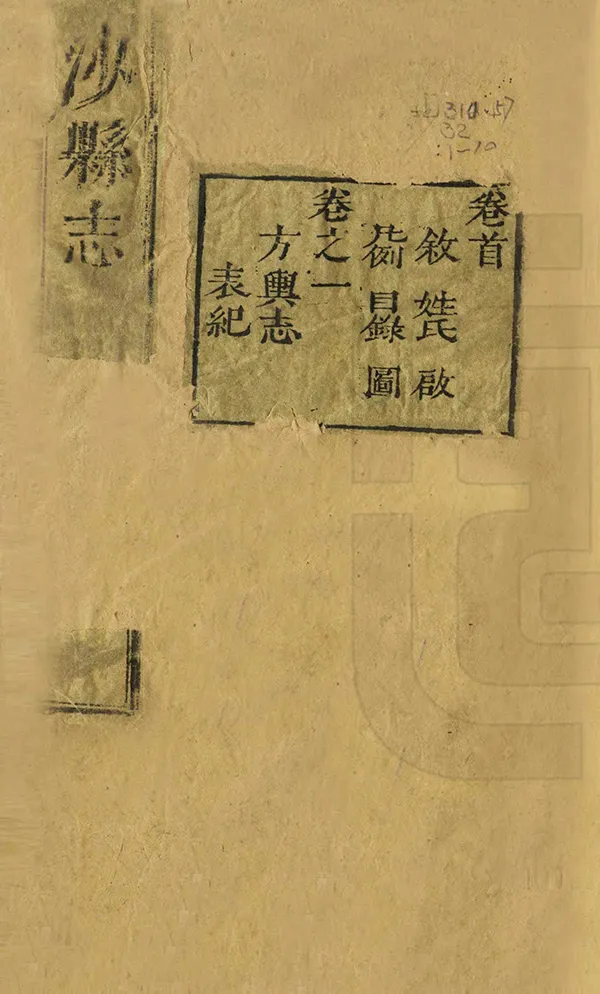 沙縣志
卷首
敘 姓氏 啟
凡例 目錄 圖
卷之一
方輿志
表紀
32
:1-10